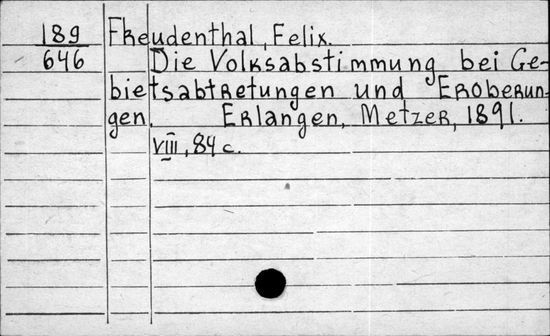 189 Freudenthal, Felix.
646 Die Volksabstimmung bei Ge-
bietsabtretungen und Eroberun-
gen. Erlangen, Metzer, 1891.
VIII, 84 c.